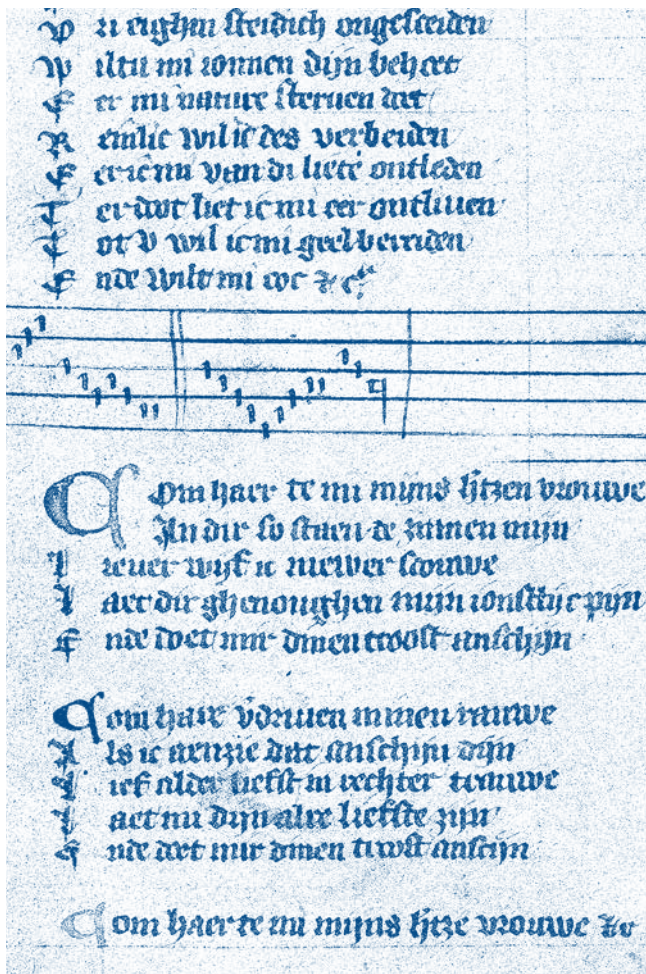 D n eighin steidich ongesceiden
W iltu mi ionnen dijn beheet
E er mi nature steruen deet
R einlic wil ic des verbeiden
E er ic mi van di liete ontleden
L er doot liet ic mi eer ontliuen
T ot v wil ic mi gheel bereiden
E nde wilt mi ooc &c
Com haer te mi mijns htzen vrouwe
An dir so staen de zinnen mijn
L ieuer wijf ic niewer scouwe
L aet dir ghenoughen mijn ionstlijc pijn
E nde doet mir dinen troost anschijn
Com hare vdriuen minen rauwe
A ls ic aenzie dat anschijn dijn
L ief alder liefst in rechter trauwe
L aet mi dijn alre liefste zijn
E nde doet mir dinen troost anscijn
Com haer te mi mijns htze vrouwe &c